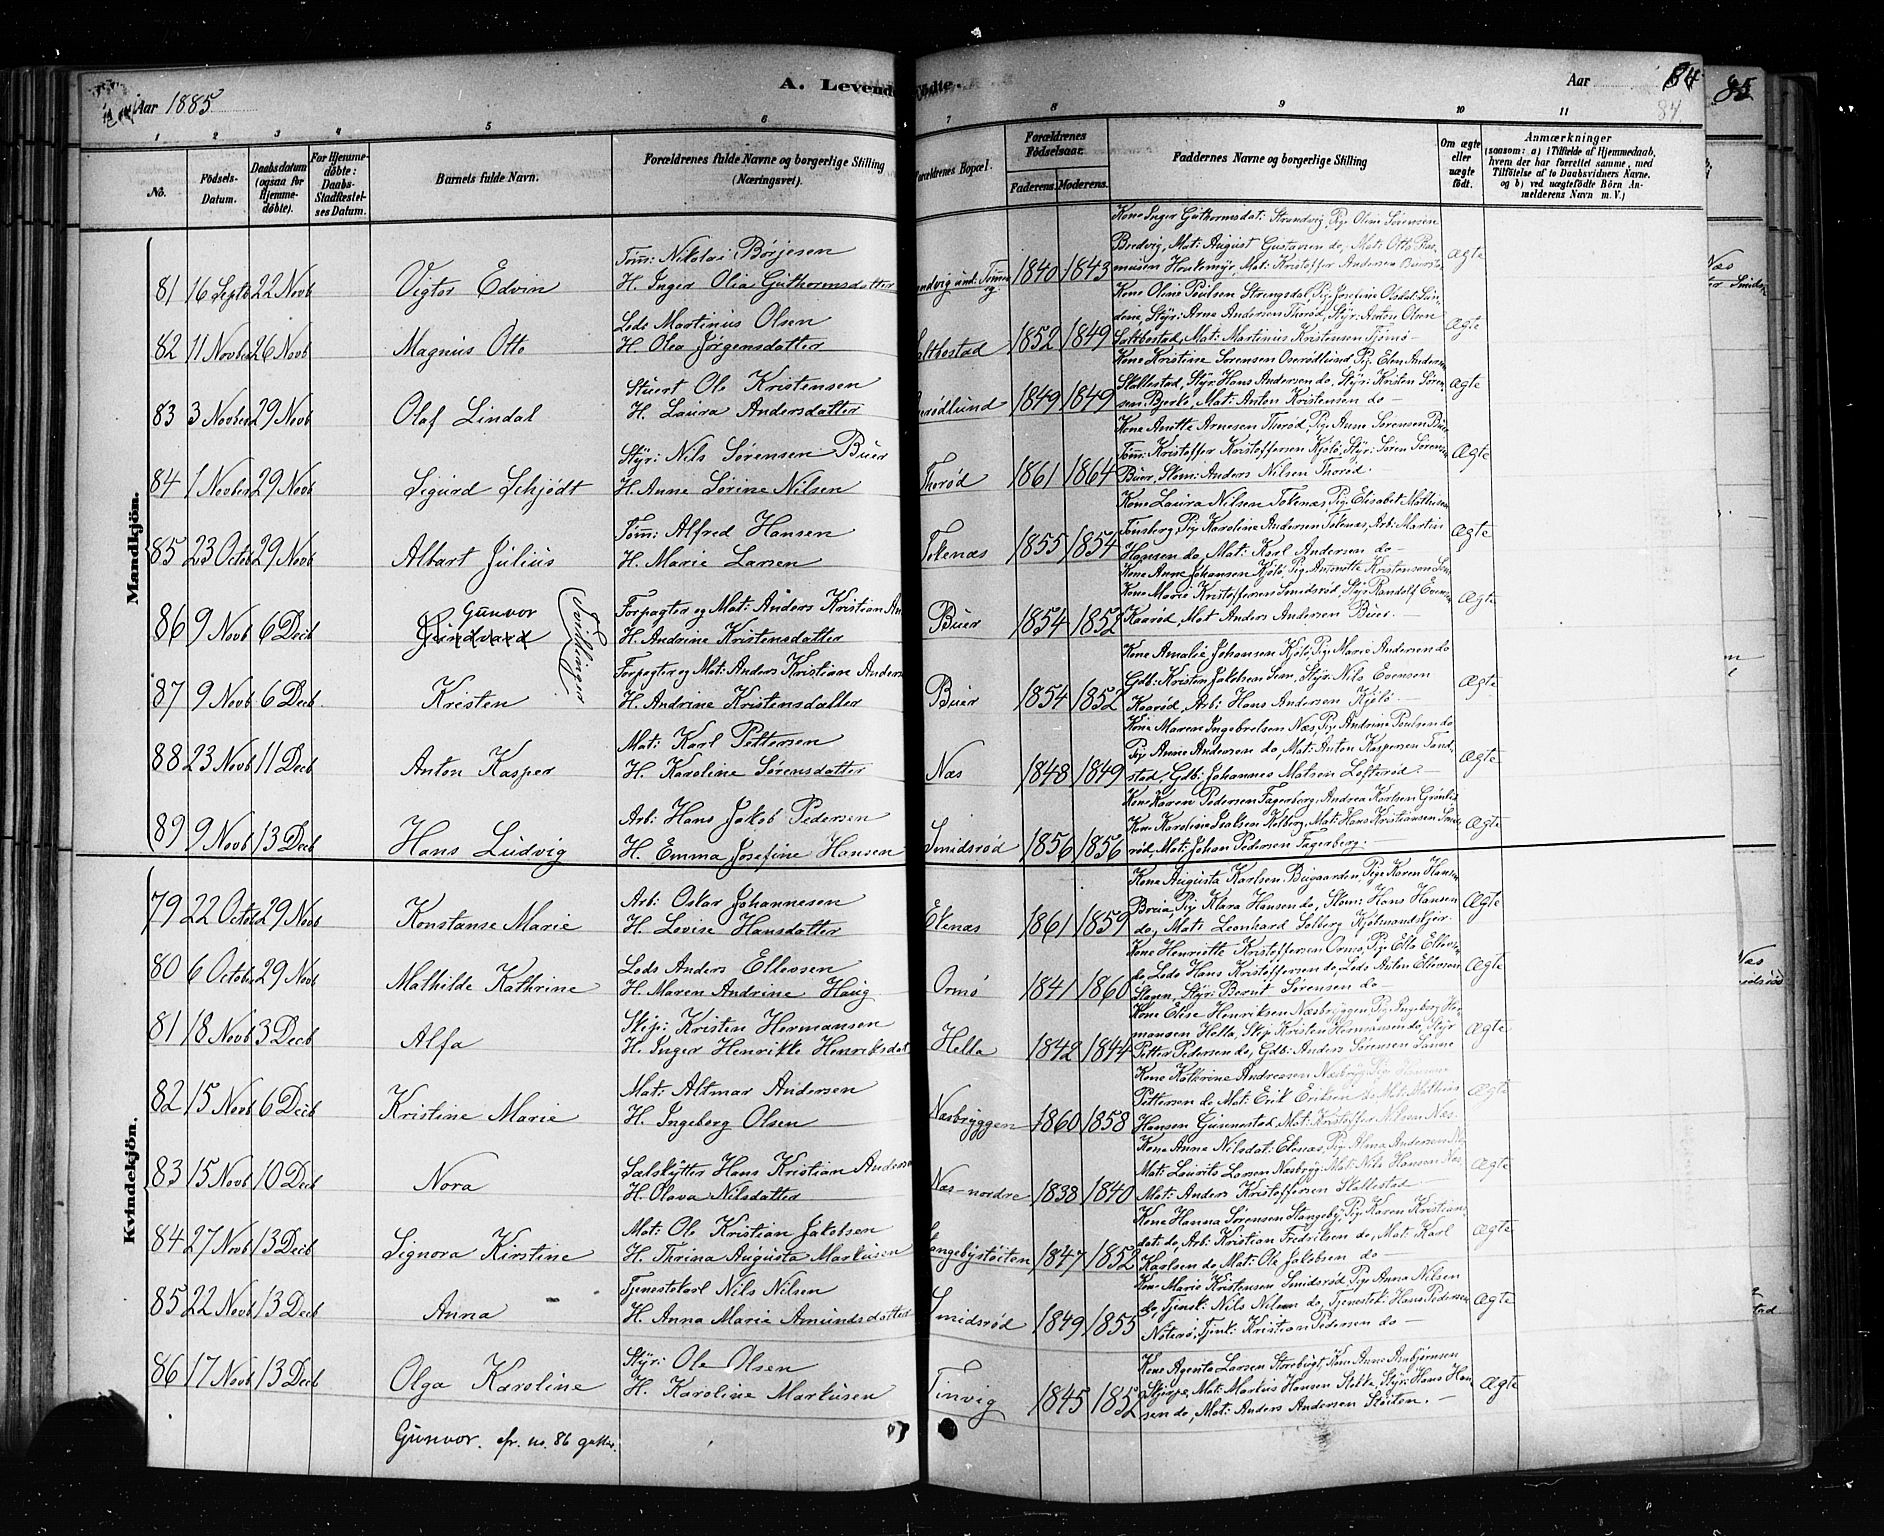 Aar 1885
A. Levende
Fødte.
Aar
84
84.
85
1
2
3
4
5
6
7
8
9
10
11
No.
Fødsels-
Datum.
Daabsdatum
(ogsaa for
Hjemme-
døbte).
For Hjemme-
døbte:
Daabs-
Stadfæstel-
ses Datum.
Barnets fulde Navn.
Forældrenes fulde Navne og borgerlige Stilling
(Næringsvei).
Forældrenes Bopæl.
Forældrenes
Fødselsaar.
Faderens. Moderens.
Faddernes Navne og borgerlige Stilling
Om ægte
eller
uægte
født.
Anmærkninger
(saasom: a) i Tilfælde af Hjemmedaab,
hvem der har forrettet samme, med
Tilføielse af to Daabsvidners Navne.
og b) ved uægtefødte Börn An-
melderens Navn m. V.)
Mandkjön.
81 16 Septb 22 Novb Vigtor Edvin
Töm: Nikolai Børjesen
H. Inger Olia Guthormsdatter
1840 1843
Kone Inger Guthormsdat: Strandvig, Pig: Oline Sørensen
Bredvig, Mat: August Gustavsen do, Mat: Otto Ras-
musen Mat: Kristoffer Andersen
Ægte
82 11 Novber 26 Novb Magnus Otto
Lods Martinius Olsen
H. Olea Jørgensdatter
Saltbostad 1852 1849
Kone Oline Poulsen Strengsdal, Pig: Josefine Olsdat: Lin-
dene, Styr: Arne Andersen Thorød, Styr: Anton Olsen
Saltbostad, Mat: Martinus Kristensen Tjømø
Ægte
83 3 Novber 29 Novb Olaf Lindal
Stuert Ole Kristensen
H. Laura Andersdatter
1849 1849
Kone Kristine Sørensen Pig: Elen Anders
Skallestad, Styr: Hans Andersen do, Styr: Kristen Søren-
sen Bjerke, Mat: Anton Kristensen do
Ægte
84 1 Novber 29 Novb Sigurd Schjødt
Styr: Nils Sørensen Buer
H. Anne Sørine Nilsen
Thorød 1861 1864
Kone Anette Arnesen Thorød, Pig: Anne Sørensen Buer
Töm: Kristoffer Kristoffersen Kjøló, Styr: Søren Sørensen
Buer, Skom: Anders Nilsen Thorød.
Ægte
85 23 Octob 29 Novb Albart Julius
Töm: Alfred Hansen
H. Marie Larsen
Tokenæs 1855 1854
Kone Laura Nilsen Tokenæs, Pig: Elisabet Mathisen
Tönsberg, Pig: Karoline Andersen Tokenæs, Arb: Martin
Hansen do, Mat: Karl Andersen do
Ægte
86 9 Novb 6 Decb Gunvor
Gundvard
Tvillinger
Forpagter og Mat: Anders Kristian An
H. Andrine Kristensdatter
Buer 1854 1852
Kone Anne Johansen Kjøló, Pig: Annette Kristensen Sem
Kone Marie Kristoffersen Smidsrød, Styr Randolf Evensen
Kaarød, Mat Anders Andersen Buer.
Ægte
87 9 Novb 6 Decb. Kristen
Forpagter og Mat: Anders Kristian Anders
H. Andrine Kristensdatter
Buer 1854 1852
Kone Amalie Johansen Kjøló, Pig: Marie Andersen do
Gdb: Kristen Jakobsen Sem, Styr: Nils Evensen
Kaarød, Arb: Hans Andersen Kjøló
Ægte
88 23 Novb 11 Decb Anton Kasper
Mat: Karl Pettersen
H. Karoline Sørensdatter
Næs 1848 1849
Kone Maren Ingebretsen Næs, Pig: Andrine Poulsen do
Pig: Anne Andersen do, Mat: Anton Kaspersen Tand-
stad, Gdb: Johannes Matsen Lofterød.
Ægte
89 9 Novb 13 Decb Hans Ludvig
Arb: Hans Jakob Pedersen
H. Emma Josefine Hansen
Smidsrød 1856 1856
Kone Karen Pedersen Fagerberg, Andrea Karlsen
Kone Karoline Isaksen Kolberg, Mat: Hans Kristiansen Smids
rød, Mat: Johan Pedersen Fagerberg.
Ægte
Kvindekjön.
79 22 Octob 29 Novb Konstanse Marie
Arb: Oskar Johannesen
H. Lovise Hansdatter
Ekenæs 1861 1859
Kone Augusta Karlsen Bugaarden, Pige Karen Hansen
Pig: Klara Hansen do, Skom: Hans Hansen
do, Mat: Leonhard Solberg Kjølmandskjær
Ægte
80 6 October 29 Novb Mathilde Kathrine
Lods Anders Ellevsen
H. Maren Andrine Haug
Ormø 1841 1860
Kone Henriette Kristoffersen Ormø, Pig: Ella Ellevs
do, Lods Hans Kristoffersen do, Lods Anton Ellevsen
Styr: Bernt Sørensen do
Ægte
81 18 Novb 3 Decb Alfa
Skip: Kristen Hermansen
H. Inger Henrikke Henriksdat
Hella 1842 1844
Kone Elise Henriksen Næsbryggen, Pig: Ingeborg Her-
mansen Hella, Skip Kristen Hermansen do, Styr
Petter Pedersen do, Gdb: Anders Sørensen
Ægte
82 15 Novb 6 Decb Kristine Marie
Mat: Altmar Andersen
H. Ingeborg Olsen
Næsbryggen 1860 1858
Kone Kathrine Andreasen Næsbryg,
Pettersen do Mat: Erik Eriksen do Mat: Mathias
Hansen Gunnestad Mat: Kristoffer Næs
Ægte
83 15 Novb 10 Decb Nora
Sælskytter Hans Kristian Anders
H. Olava Nilsdatter
Næs nordre 1838 1840
Kone Anne Nilsdat: Ekenæs, Pig: Alma Andersen
Mat: Laurits Larsen Næsbryg: Mat: Nils Hansen Næs
Mat: Anders Kristoffersen Skallestad
Ægte
84 27 Novb 13 Decb Signora Kirstine
Mat: Ole Kristian Jakobsen
H. Thrina Augusta Markusen
1847 1852
Kone Hanna Sørensen Stangeby, Pig: Karen Kristian
dat: do, Arb: Kristian Fredriksen do, Mat: Karl
Karlsen do Mat: Ole Jakobsen do
Ægte
85 22 Novb 13 Decb Anna
Tjenestekarl Nils Nilsen
H. Anna Marie Amundsdatter
Smidsrød 1849 1855
Kone Marie Kristensen Smidsrød, Pige Anna Nilsen
do, Tjenstk: Nils Nilsen do, Tjenestek: Hans Pedersen
Nøterø, Tjenk: Kristian Pedersen do
Ægte
86 17 Novb 13 Decb Olga Karoline
Styr: Ole Olsen
H. Karoline Markusen
Tinvig 1845 1852
Kone Agenta Larsen Kone Anne Arnbjørnsen
Mat: Markus Hansen Stokke, Styr: Hans Han-
sen do, Mat: Anders Andersen Støiten.
Ægte
Gunvor. cfr. no. 86 gutter.